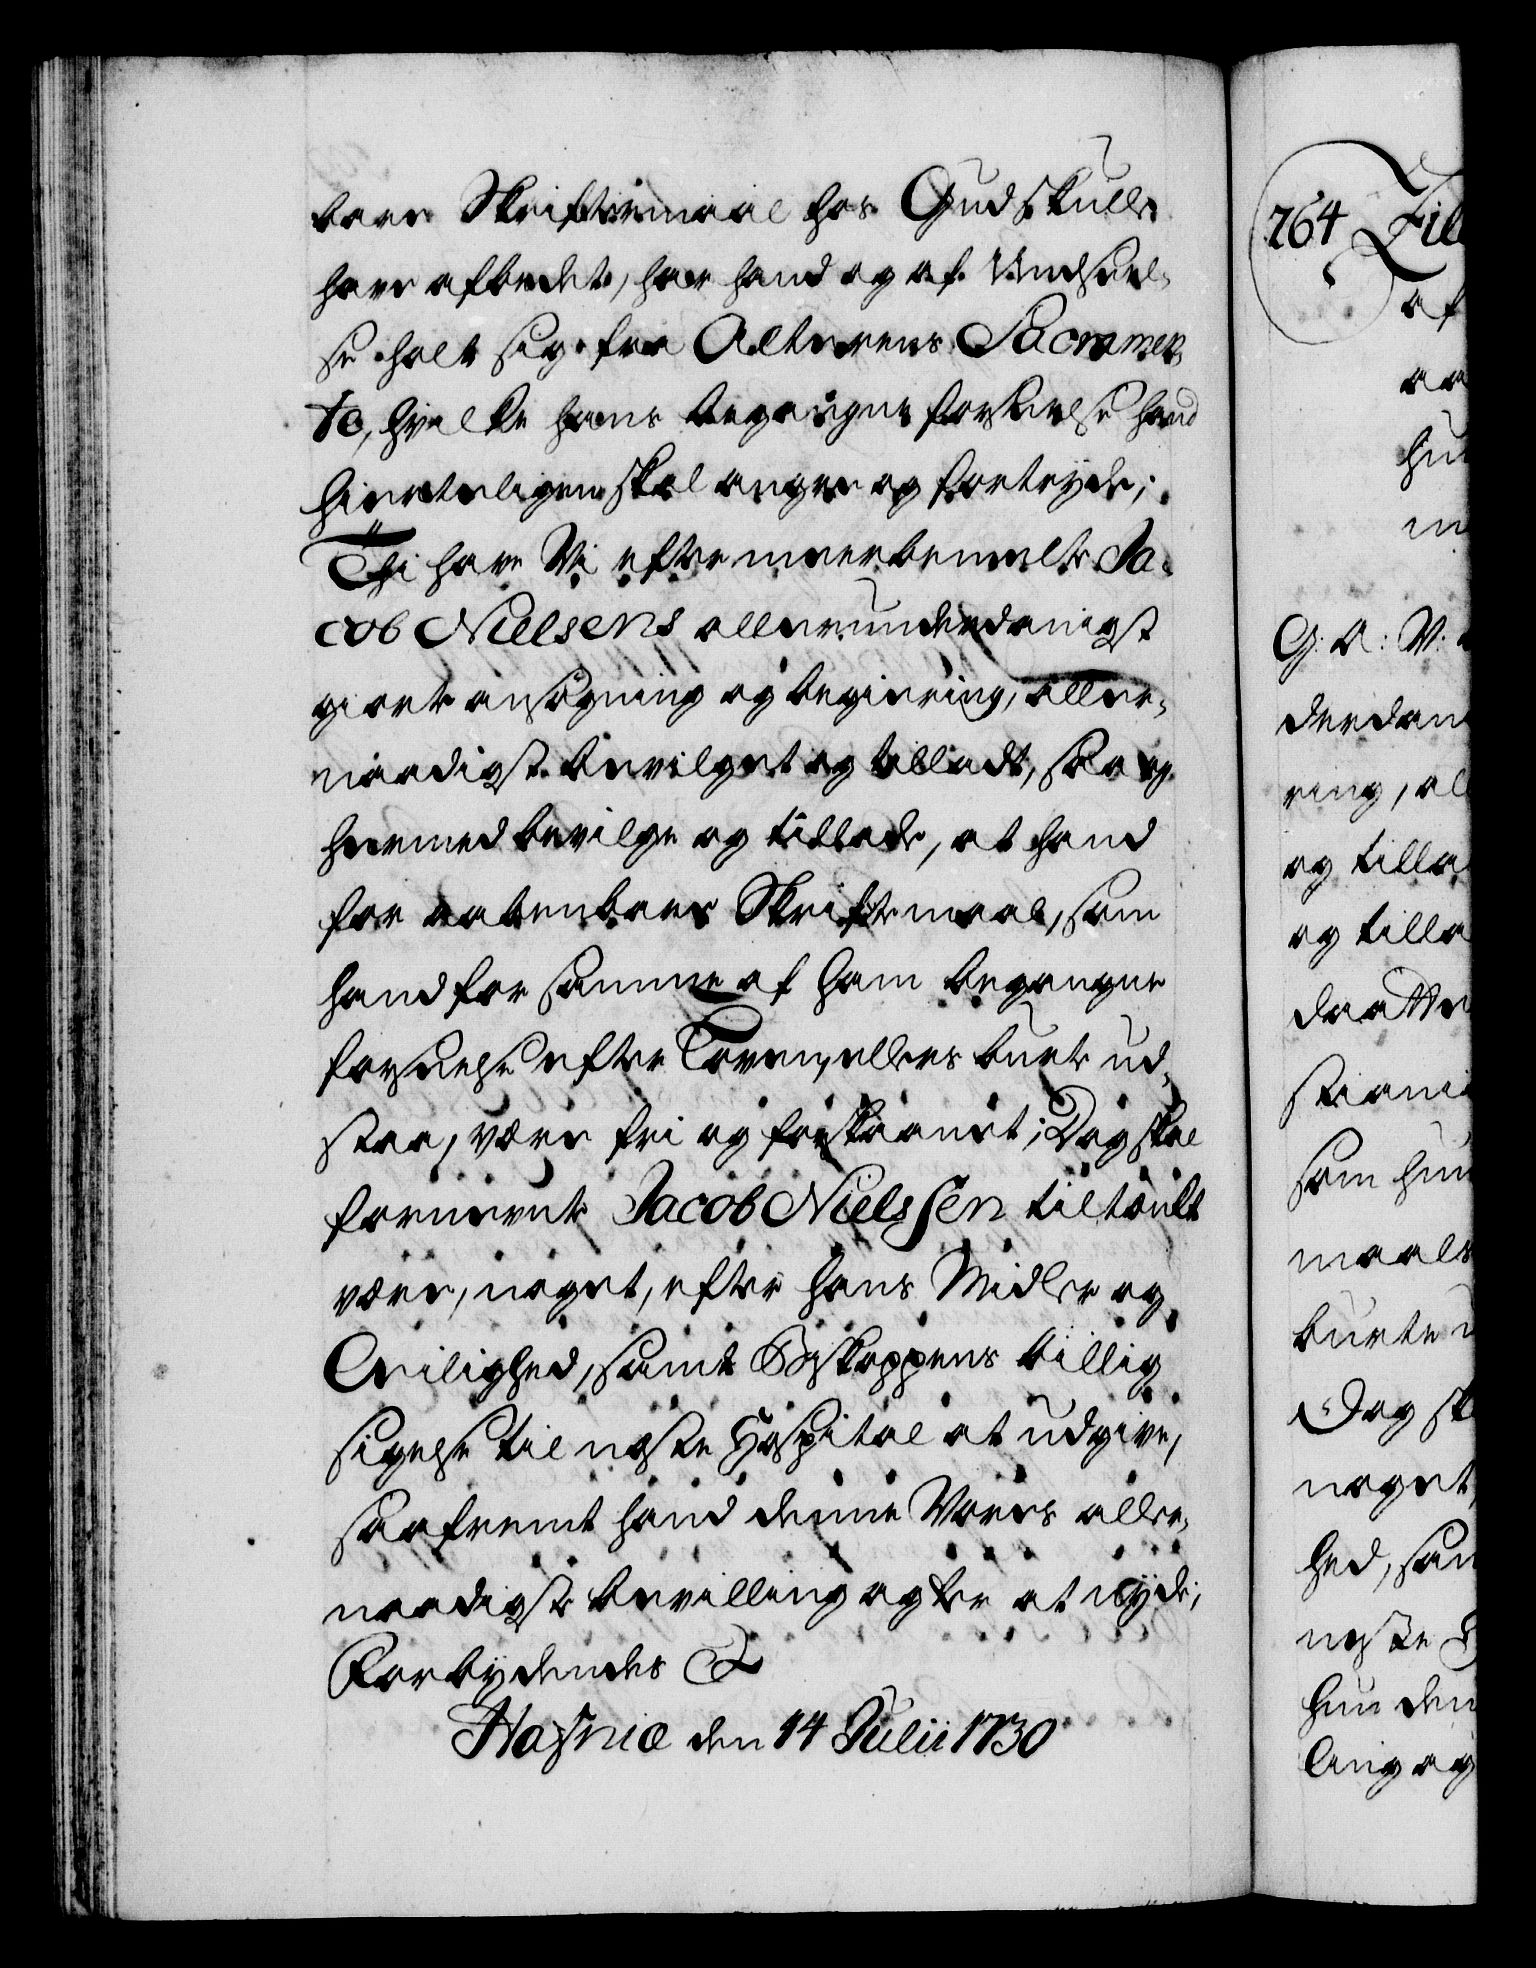 bare Skriftemaal hos Gud skulle
have afbedet, har hand og af Undseel-
se holt sig fra Alterens Sacramen-
te, hvilke hans begangne forseelse hand
hiertteligen skal angre og fortryde;
Thi have Vi efter meerbemelte Ja-
cob Nielsens allerunderdanigst
giorte ansøgning og begiering, aller-
naadigst bevilget og tilladt, saa og
hermed bevilge og tillade, at hand
for aabenbare Skriftemaal, som
hand for samme af ham begangne
forseelse efter Loven, ellers burte ud-
staa, være fri og forskaanet; Dog skal
fornevnte Jacob Nielssen tiltænkt
være, noget, efter hans Midler og
Leilighed, samt Biskoppens billig
sigelse til neste Hospital at udgive,
saafremt hand denne Vores aller-
naadigste bevilling agter at nyde;
Forbydendes &
Hafniæ den 14 Julii 1730
764 Till
af
aa
hu
m
G: A: V:
derdan
ring, al
og tilla
og tilla
daatte
stiani
som hu
maale
burte u
Dog sk
noget,
hed, sam
neste H
hun den
ling ag